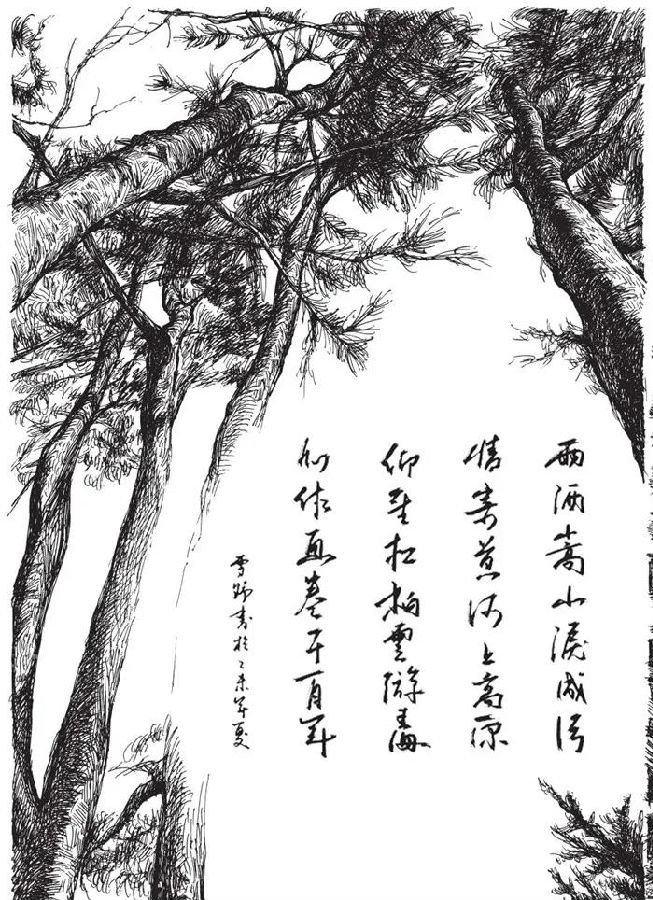 雨洒嵩山淚成
情寄黄河上高原
仰望松柏雲游海
作画卷千百年
雪書於乙未年夏